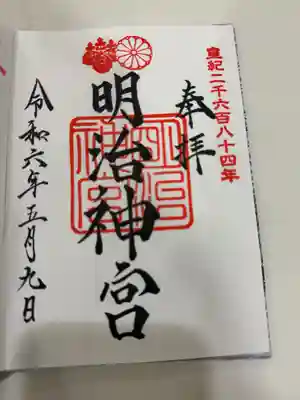 皇紀二千六百八十四年
奉拝
明治神宮
明治神宮
令和六年五月九日